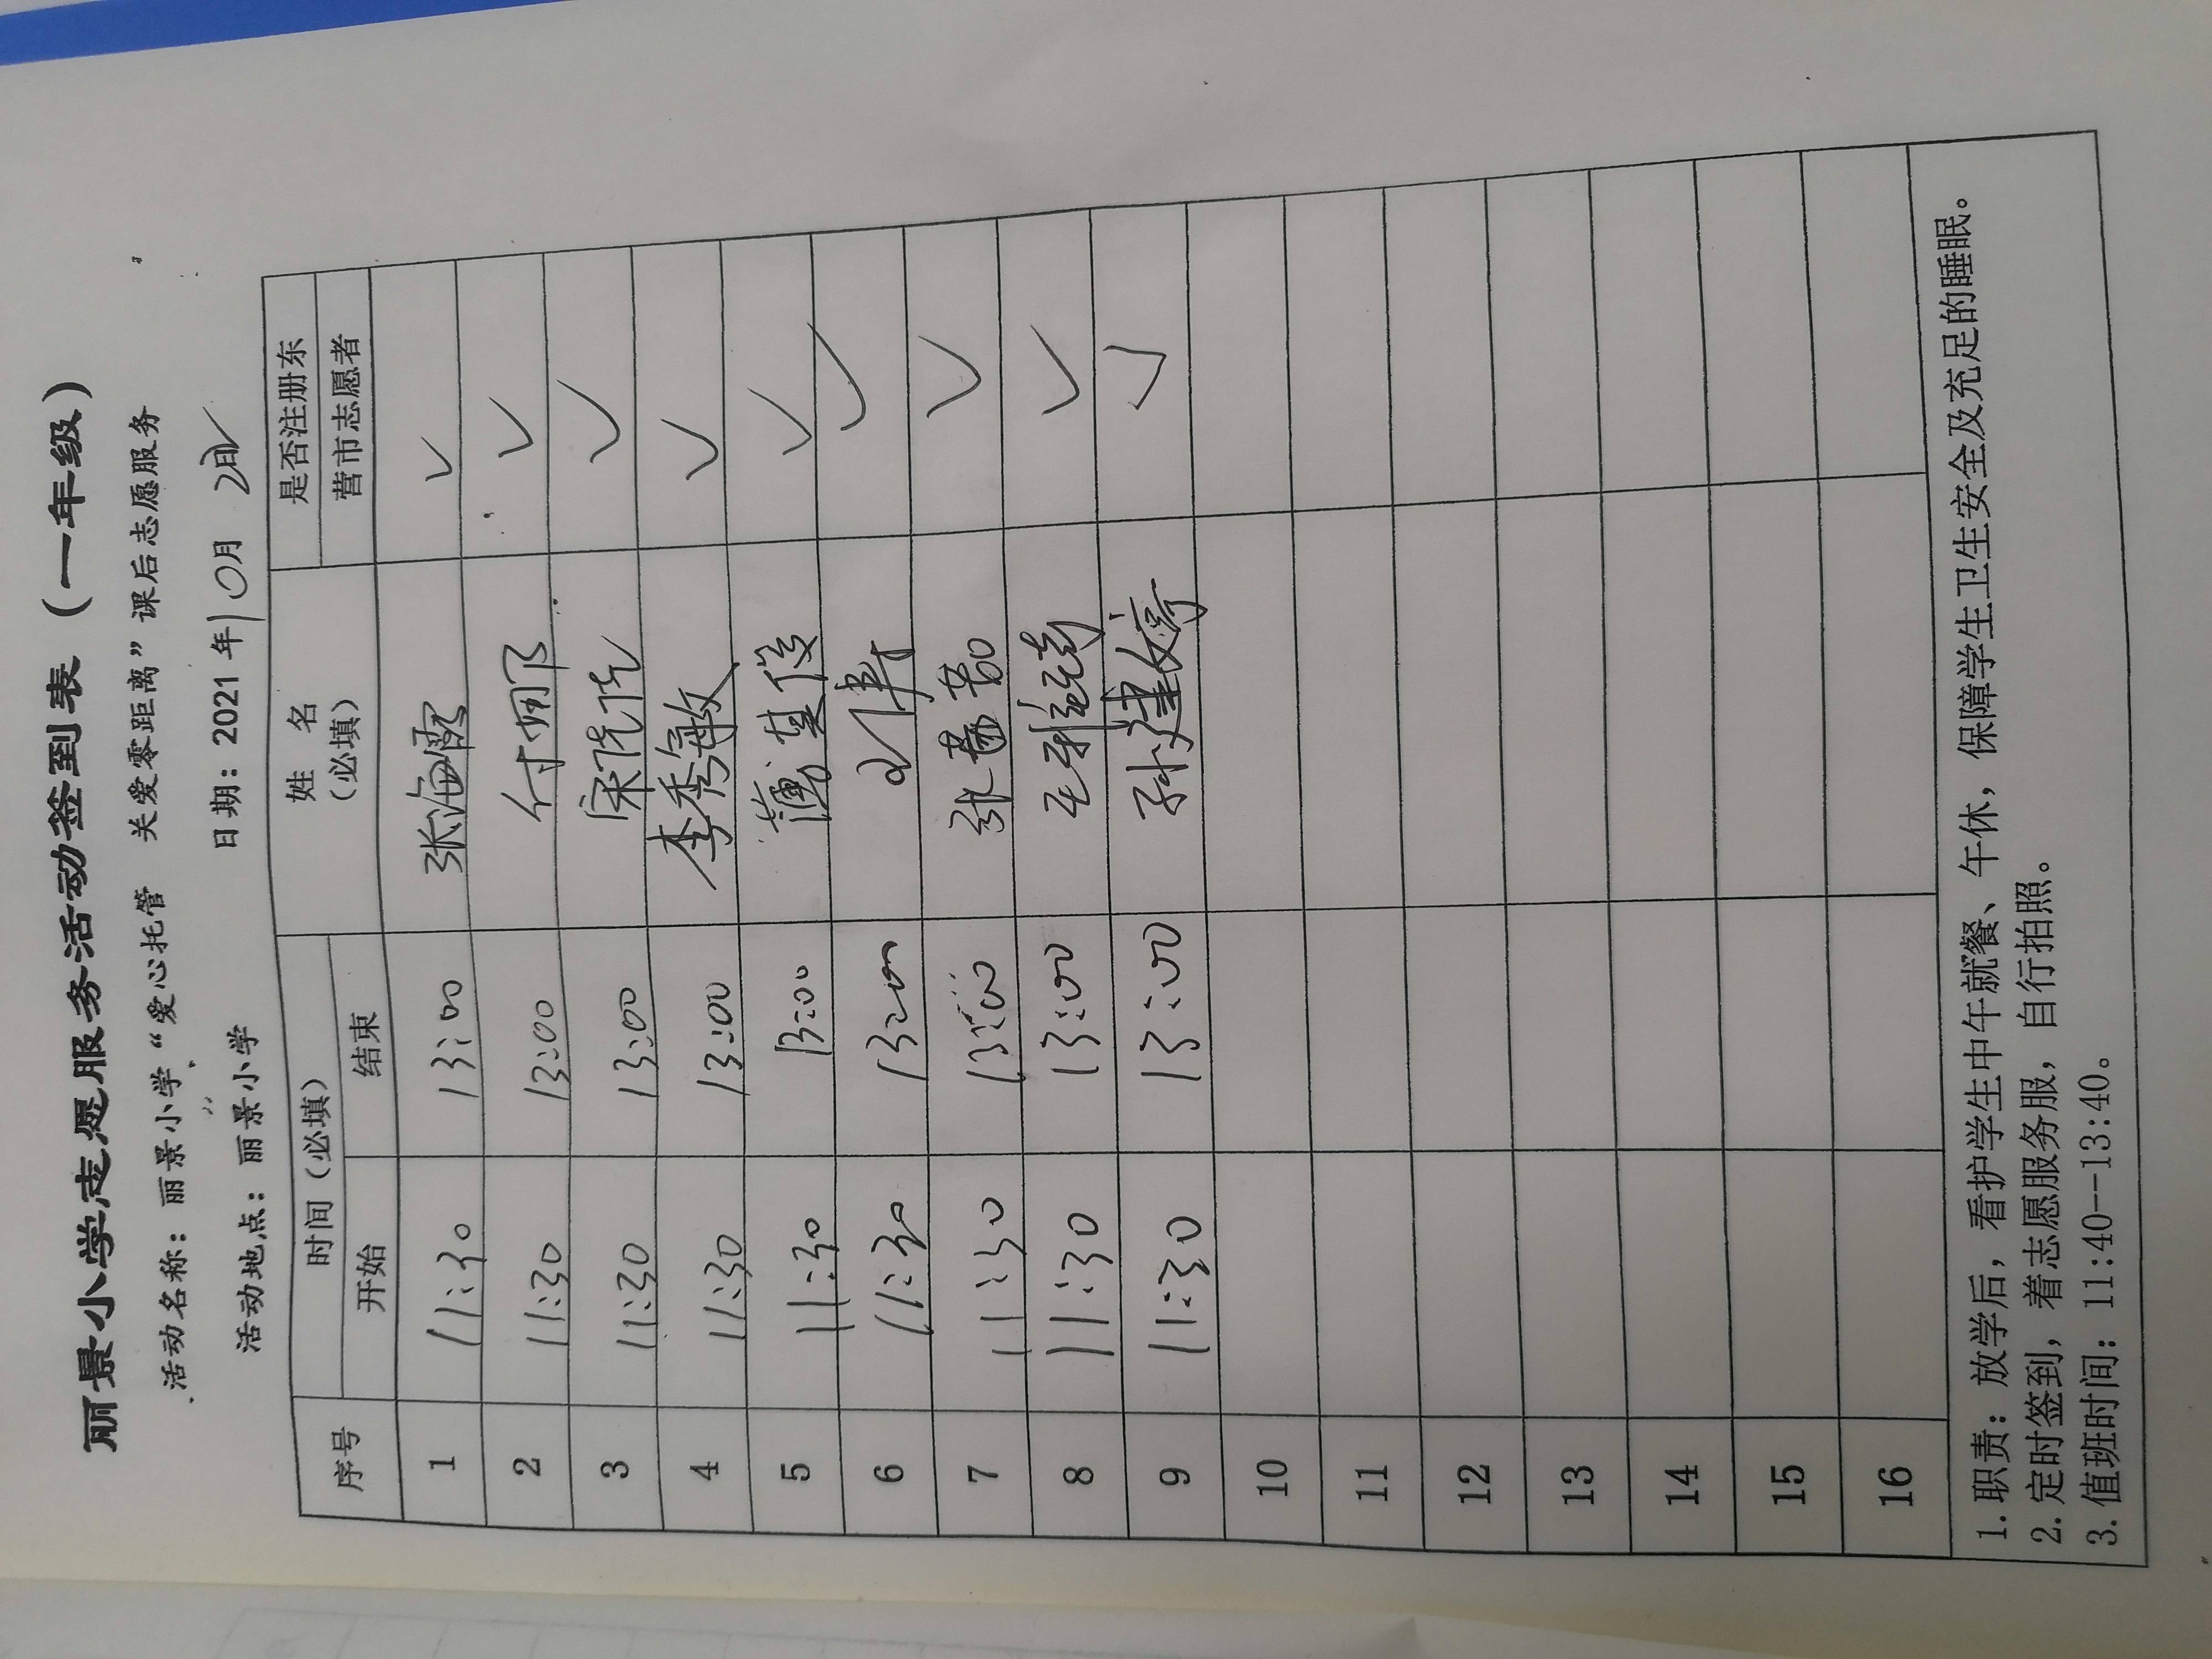 丽景小学志愿服务活动签到表（一年级）
活动名称：丽景小学“爱心托管 关爱零距离”课后志愿服务
活动地点：丽景小学 日期：2021年10月2日
序号 时间（必填） 姓 名（必填） 是否注册东营市志愿者
开始 结束
1 11:30 13:00 张海霞 ✓
2 11:30 13:00 付娜 ✓
3 11:30 13:00 宋 ✓
4 11:30 13:00 李秀敏 ✓
5 11:30 13:00 英俊 ✓
6 11:30 13:00 ✓
7 11:30 13:00 张 ✓
8 11:30 13:00 王雅 ✓
9 11:30 13:00 孙建婷 ✓
10
11
12
13
14
15
16
1.职责：放学后，看护学生中午就餐、午休，保障学生卫生安全及充足的睡眠。
2.定时签到，着志愿服务服，自行拍照。
3.值班时间：11:40--13:40。